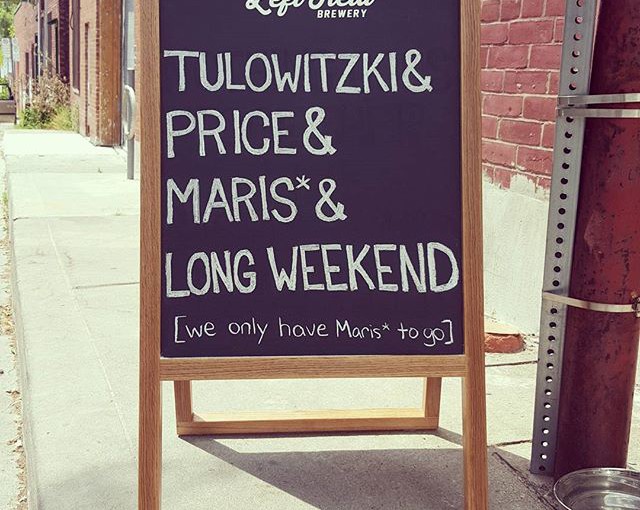 Left Field
BREWERY
TULOWITZKI&
PRICE&
MARIS*&
LONG WEEKEND
[we only have Maris* to go]